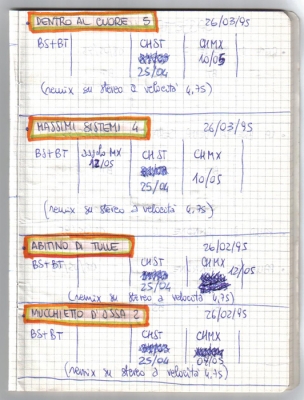 DENTRO AL CUORE 5 26/03/95
BS+BT CHST CHMX
25/04 10/05
(remix su stereo a velocità 4,75)
MASSIMI SISTEMI 4 26/03/95
BS+BT MX CHST CHMX
12/05 25/04 10/05
(remix su stereo a velocità 4,75)
ABITINO DI TULLE 26/02/95
BS+BT CHST CHMX
25/04 12/05
(remix su stereo a velocità 4,75)
MUCCHIETTO D'OSSA 2 26/02/95
BS+BT CHST CHMX
25/04 04/05
(remix su stereo a velocità 4,75)